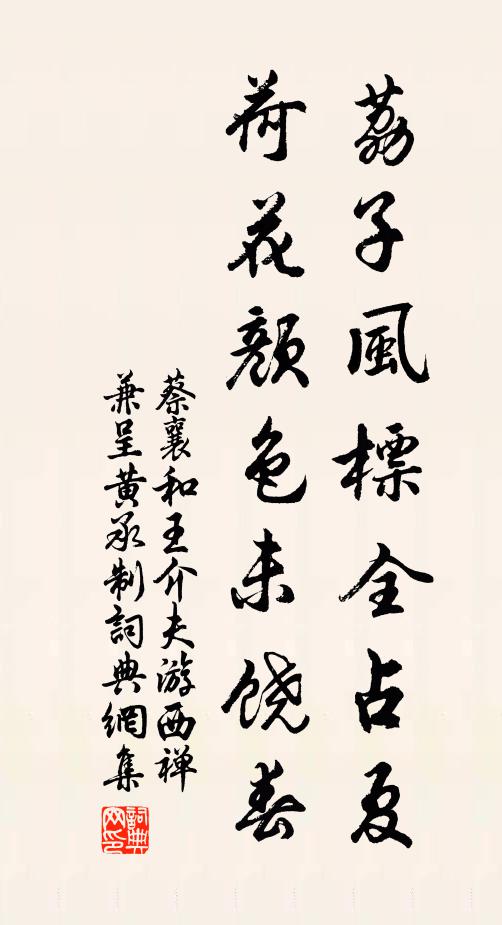 荔子風標全占夏
荷花顔色未饶春
蔡襄和王介夫游西禅
兼呈黄承制詞典網集
詞典网印